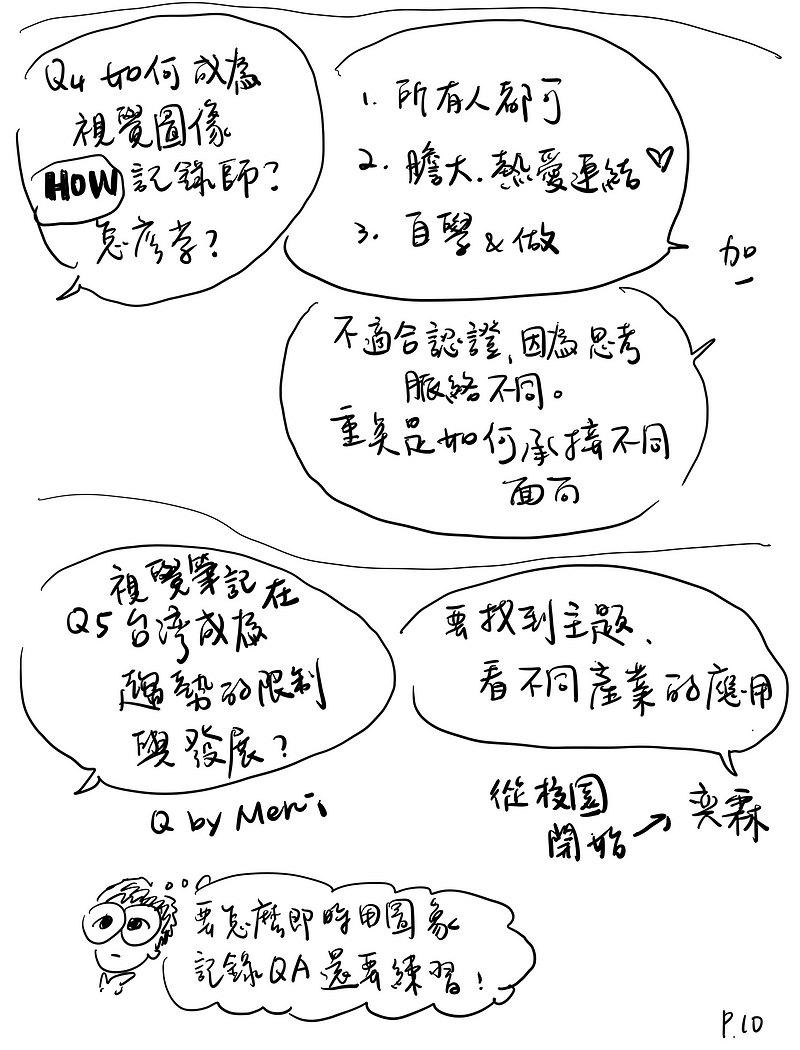 Q4 如何成為
視覺圖像
HOW 記錄師?
怎麼学?
1. 所有人都可
2. 膽大.熱愛連結♡
3. 自學 & 做
加
不適合認證,因為思考
脈絡不同。
重矣是如何承接不同
面向
視覺筆記在
Q5 台湾成為
趨勢的限制
與發展?
Q by Meri
要找到主題、
看不同產業的應用
從校園
開始 → 奕霖
要怎麼即時用圖象
記錄QA還要練習!
P.10